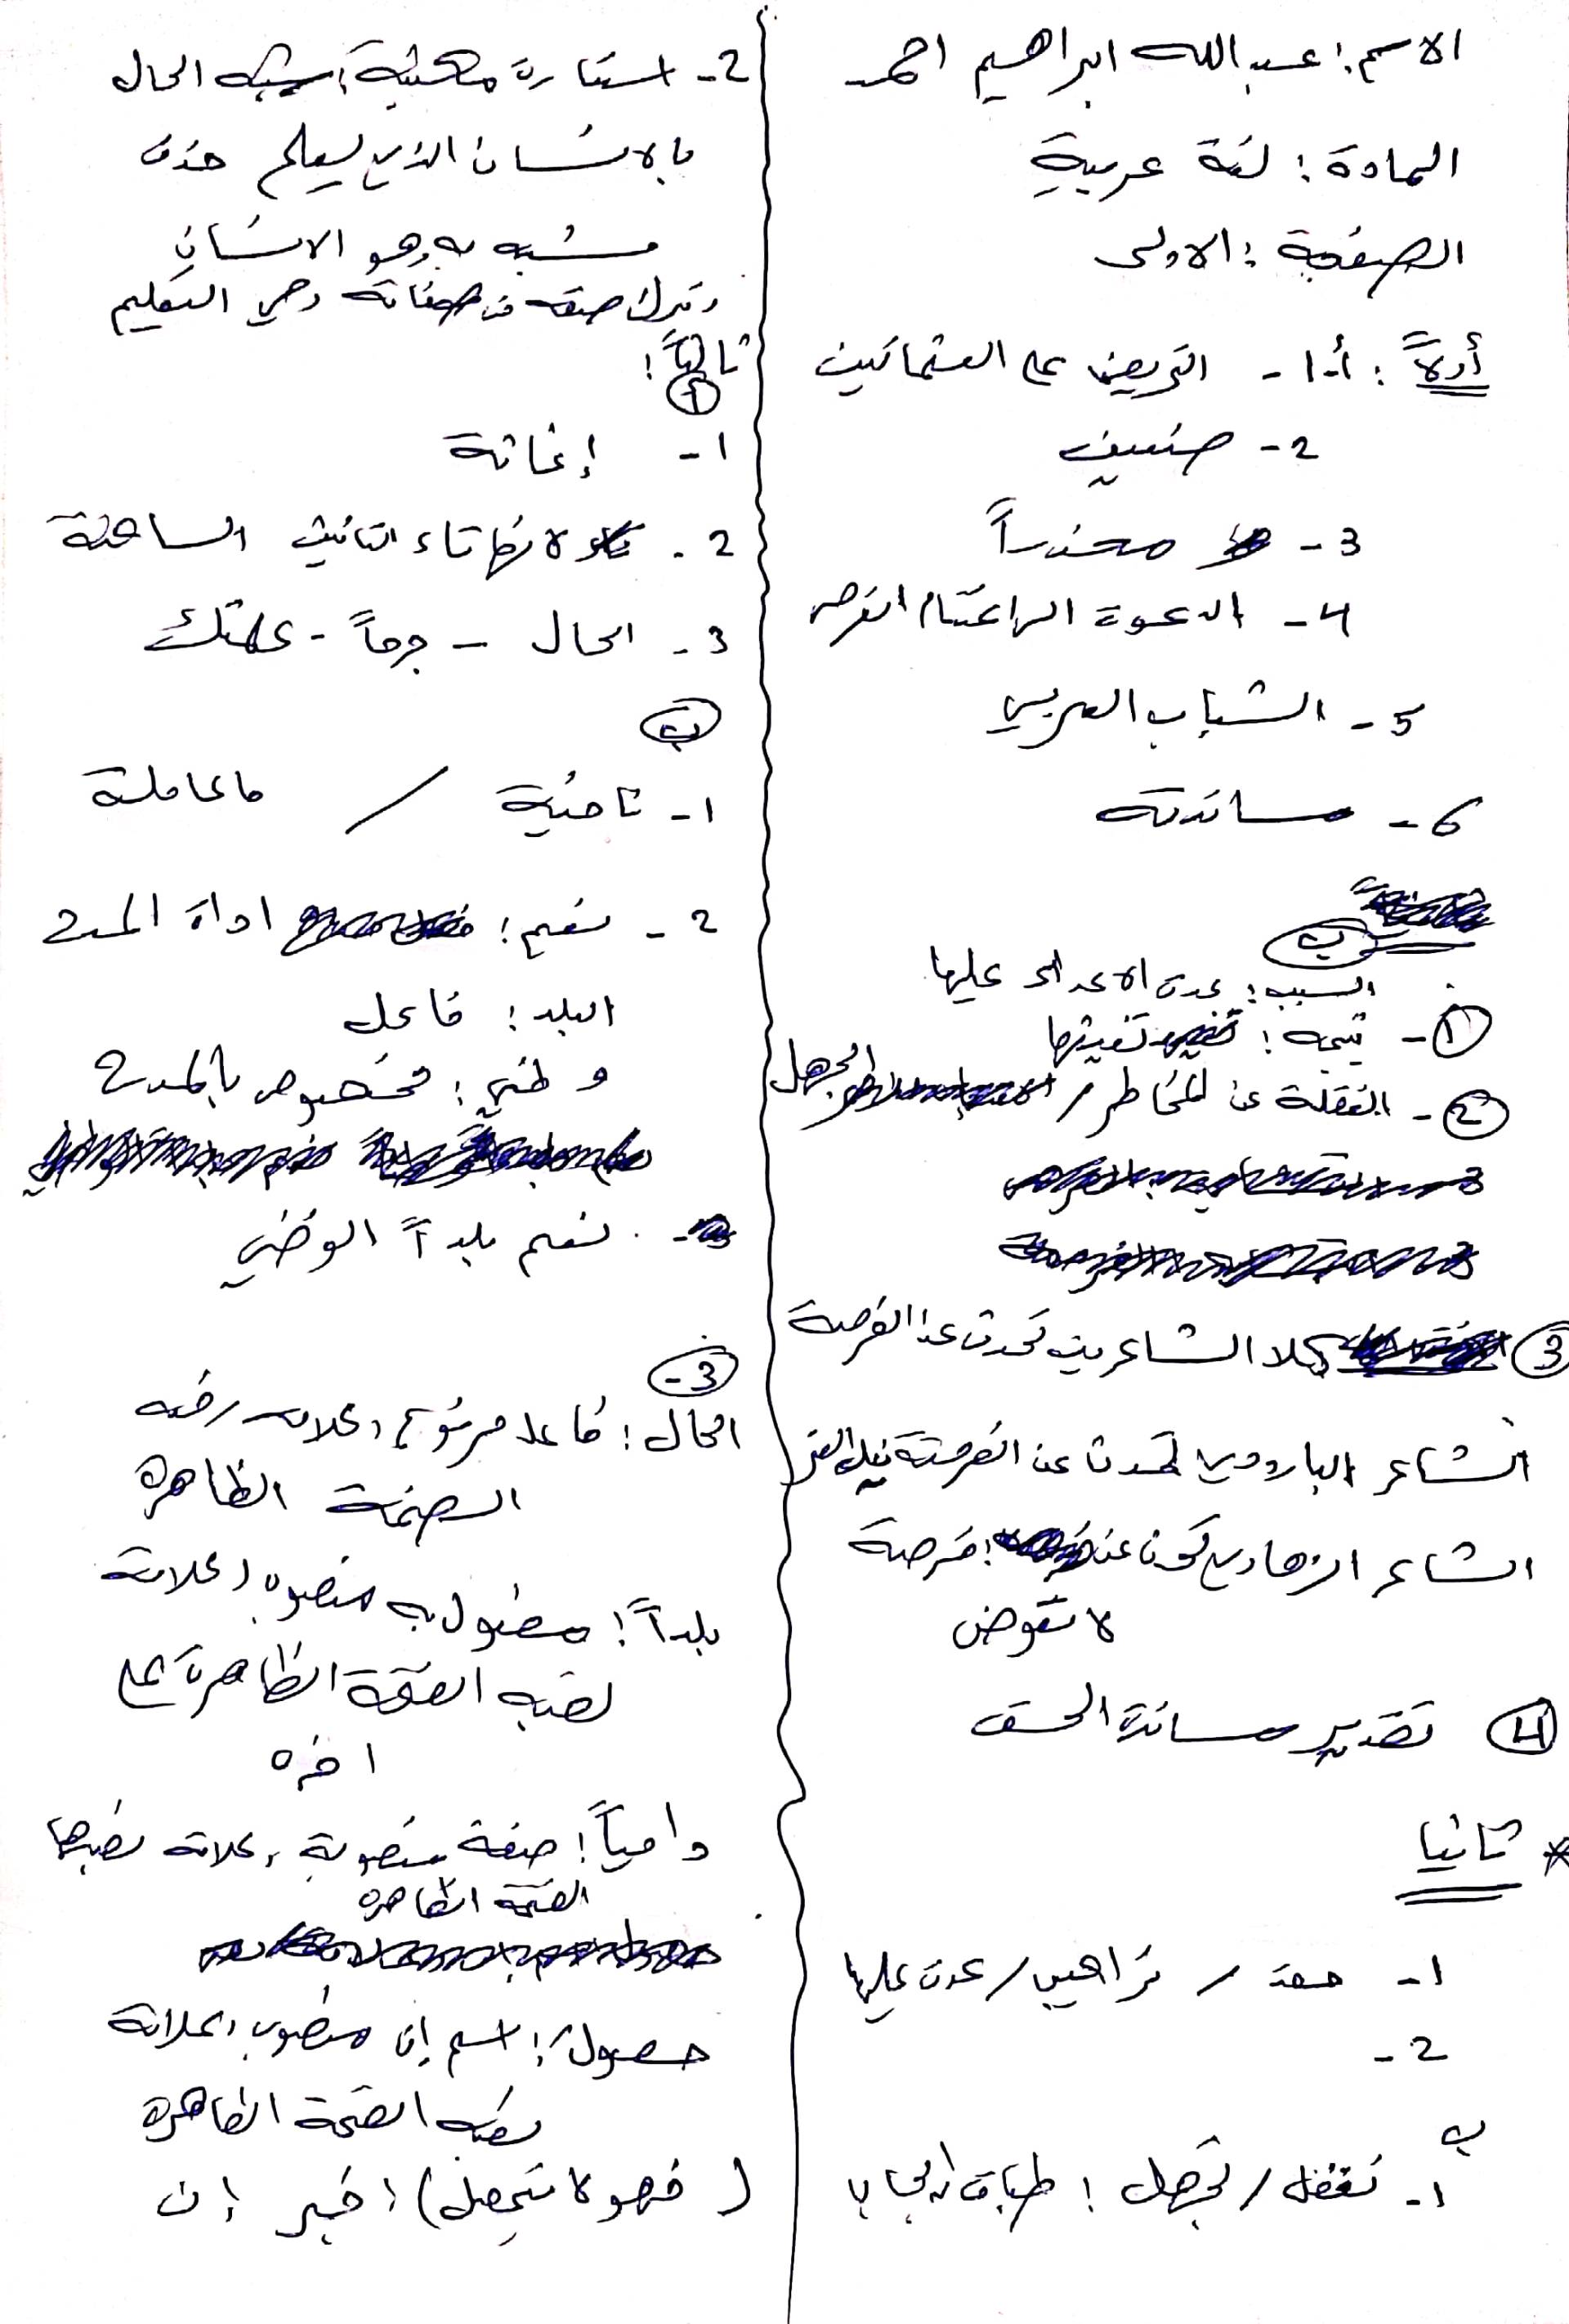 الاسم: عبدالله ابراهيم احمد
المادة: لغة عربية
الصفحة: الاولى
أولاً: أ-1- التحريض على العثمانيين
2- صنيين
3- محذراً
4- الدعوة الى اغتنام الفرص
5- الشباب العربي
6- مساندته
ب
السبب: عدت الاعداء عليها
1- نتيجه: تغيرتها
2- الغفلة عن المخاطر / الجهل
3 كلا الشاعرين تحدث عن الفرصة
الشاعر البارودي تحدث عن الفرصة
الشاعر الزهاوي تحدث عن: فرصة
لا تعوض
4 تقدير مساندة الحق
* ثانيا
1- / / عدت عليها
2-
ب
1- تغفل / تجهل: طباق ايجاب
2- استعارة مكنية: شبه الحال
بالانسان الذي يعلم حذف
مشبه به وهو الانسان
وترك صفه من صفاته وهي التعليم
ثالثاً:
أ
1- إغاثة
2- لانها تاء التانيث الساكنة
3- الحال - -
ب
1- ناحية / ما عاملة
2- نعم: اداة المدح
البلد: فاعل
وطني: مخصوص بالمدح
. نعم بلداً الوطني
3-
الحال: فاعل مرفوع وعلامه رفعه
الضمة الظاهرة
بلداً: مفعول به منصوب وعلامة
نصبه الفتحة الظاهرة على
اخره
دامياً: صفة منصوبة وعلامة نصبها
الفتحة الظاهره
حصولَ: اسم إن منصوب وعلامة
نصبه الفتحة الظاهرة
(فهو لا يحصل): خبر إن